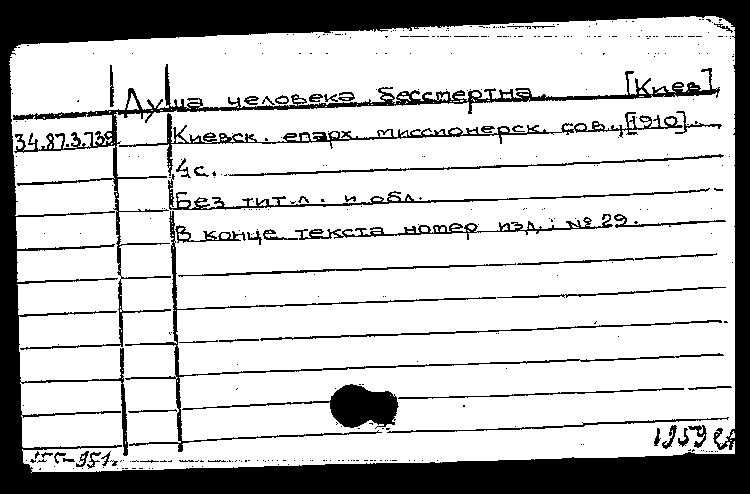 Душа человека бессмертна. [Киев],
34.87.3.739 Киевск. епарх. миссионерск. сов., [1910].
4с.
Без тит.л. и обл.
В конце текста номер изд.: № 29.
1959